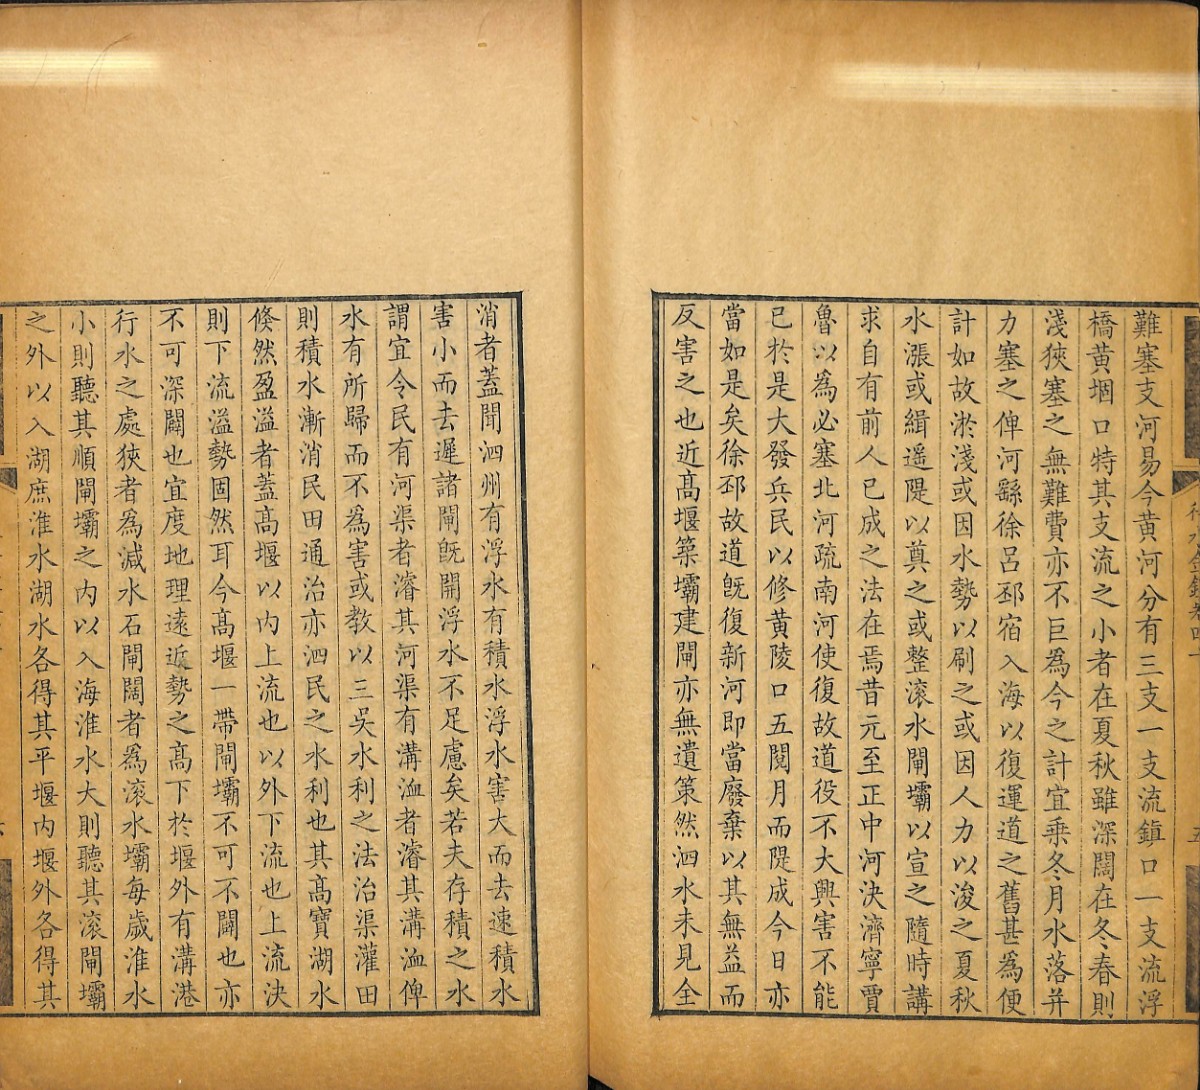 難塞支河易今黃河分有三支一支流鎮口一支流浮
橋黃堌口特其支流之小者在夏秋雖深闊在冬春則
淺狹塞之無難費亦不巨為今之計宜乘冬月水落并
力塞之俾河繇徐呂邳宿入海以復運道之舊甚為便
計如故淤淺或因水勢以刷之或因人力以浚之夏秋
水漲或緝遥隄以奠之或整滚水閘壩以宣之隨時講
求自有前人已成之法在焉昔元至正中河決濟寧賈
魯以為必塞北河疏南河使復故道役不大興害不能
已於是大發兵民以修黃陵口五閱月而隄成今日亦
當如是矣徐邳故道旣復新河即當廢棄以其無益而
反害之也近髙堰築壩建閘亦無遺策然泗水未見全
消者蓋聞泗州有浮水有積水浮水害大而去速積水
害小而去遲諸閘旣開浮水不足慮矣若夫存積之水
謂宜令民有河渠者濬其河渠有溝洫者濬其溝洫俾
水有所歸而不為害或教以三吳水利之法治渠灌田
則積水漸消民田通治亦泗民之水利也其髙寶湖水
倐然盈溢者蓋髙堰以内上流也以外下流也上流決
則下流溢勢固然耳今髙堰一帶閘壩不可不闢也亦
不可深闢也宜度地理逺近勢之髙下於堰外有溝港
行水之處狹者為減水石閘闊者為滚水壩每歲淮水
小則聽其順閘壩之内以入海淮水大則聽其滚閘壩
之外以入湖庶淮水湖水各得其平堰内堰外各得其